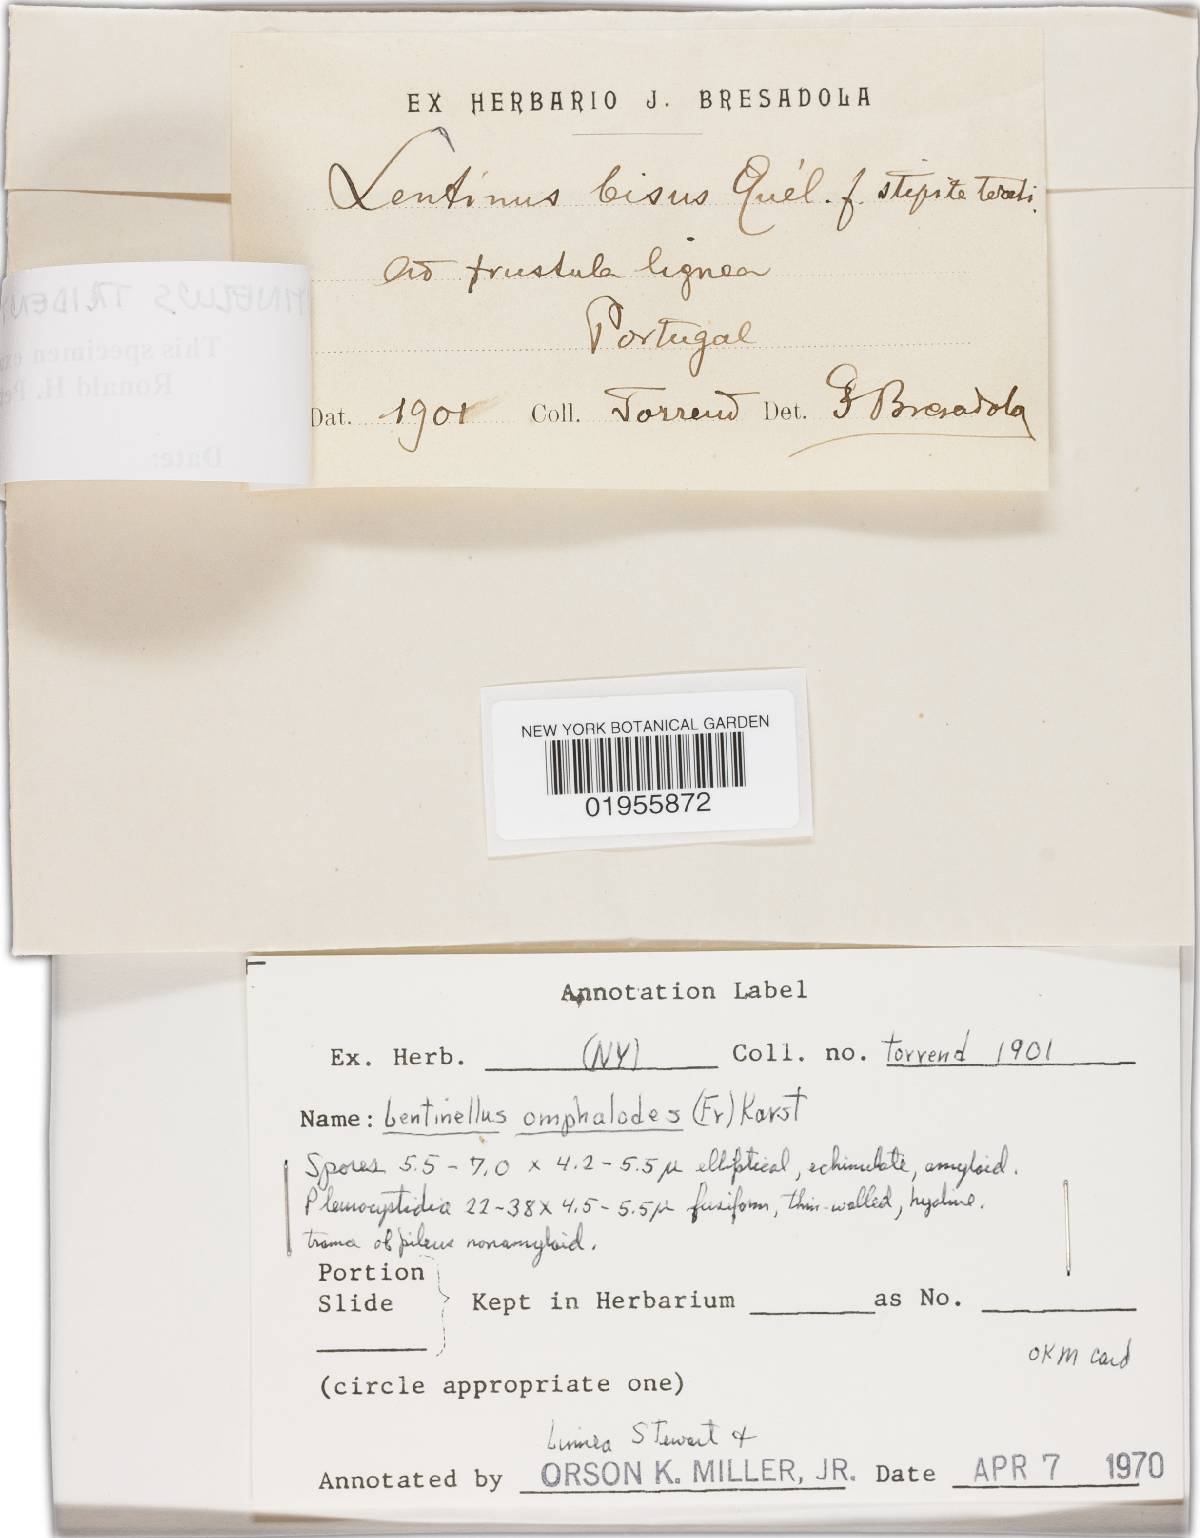 EX HERBARIO J. BRESADOLA
Lentinus bisus Quél. f. stipite tereti.
ad frustula lignea
Portugal
Dat. 1901 Coll. Torrend Det. J Bresadola
This specimen exa
Ronald H. Pe
Date:
NEW YORK BOTANICAL GARDEN
01955872
Annotation Label
Ex. Herb. (NY) Coll. no. Torrend 1901
Name: Lentinellus omphalodes (Fr) Karst
Spores 5.5 - 7.0 x 4.2 - 5.5 µ elliptical, echinulate, amyloid.
Pleurocystidia 22-38 x 4.5 - 5.5 µ fusiform, thin-walled, hyaline.
trama of pileus nonamyloid.
Portion
Slide
Kept in Herbarium as No.
OKM card
(circle appropriate one)
Linnea Stewart &
Annotated by ORSON K. MILLER, JR. Date APR 7 1970